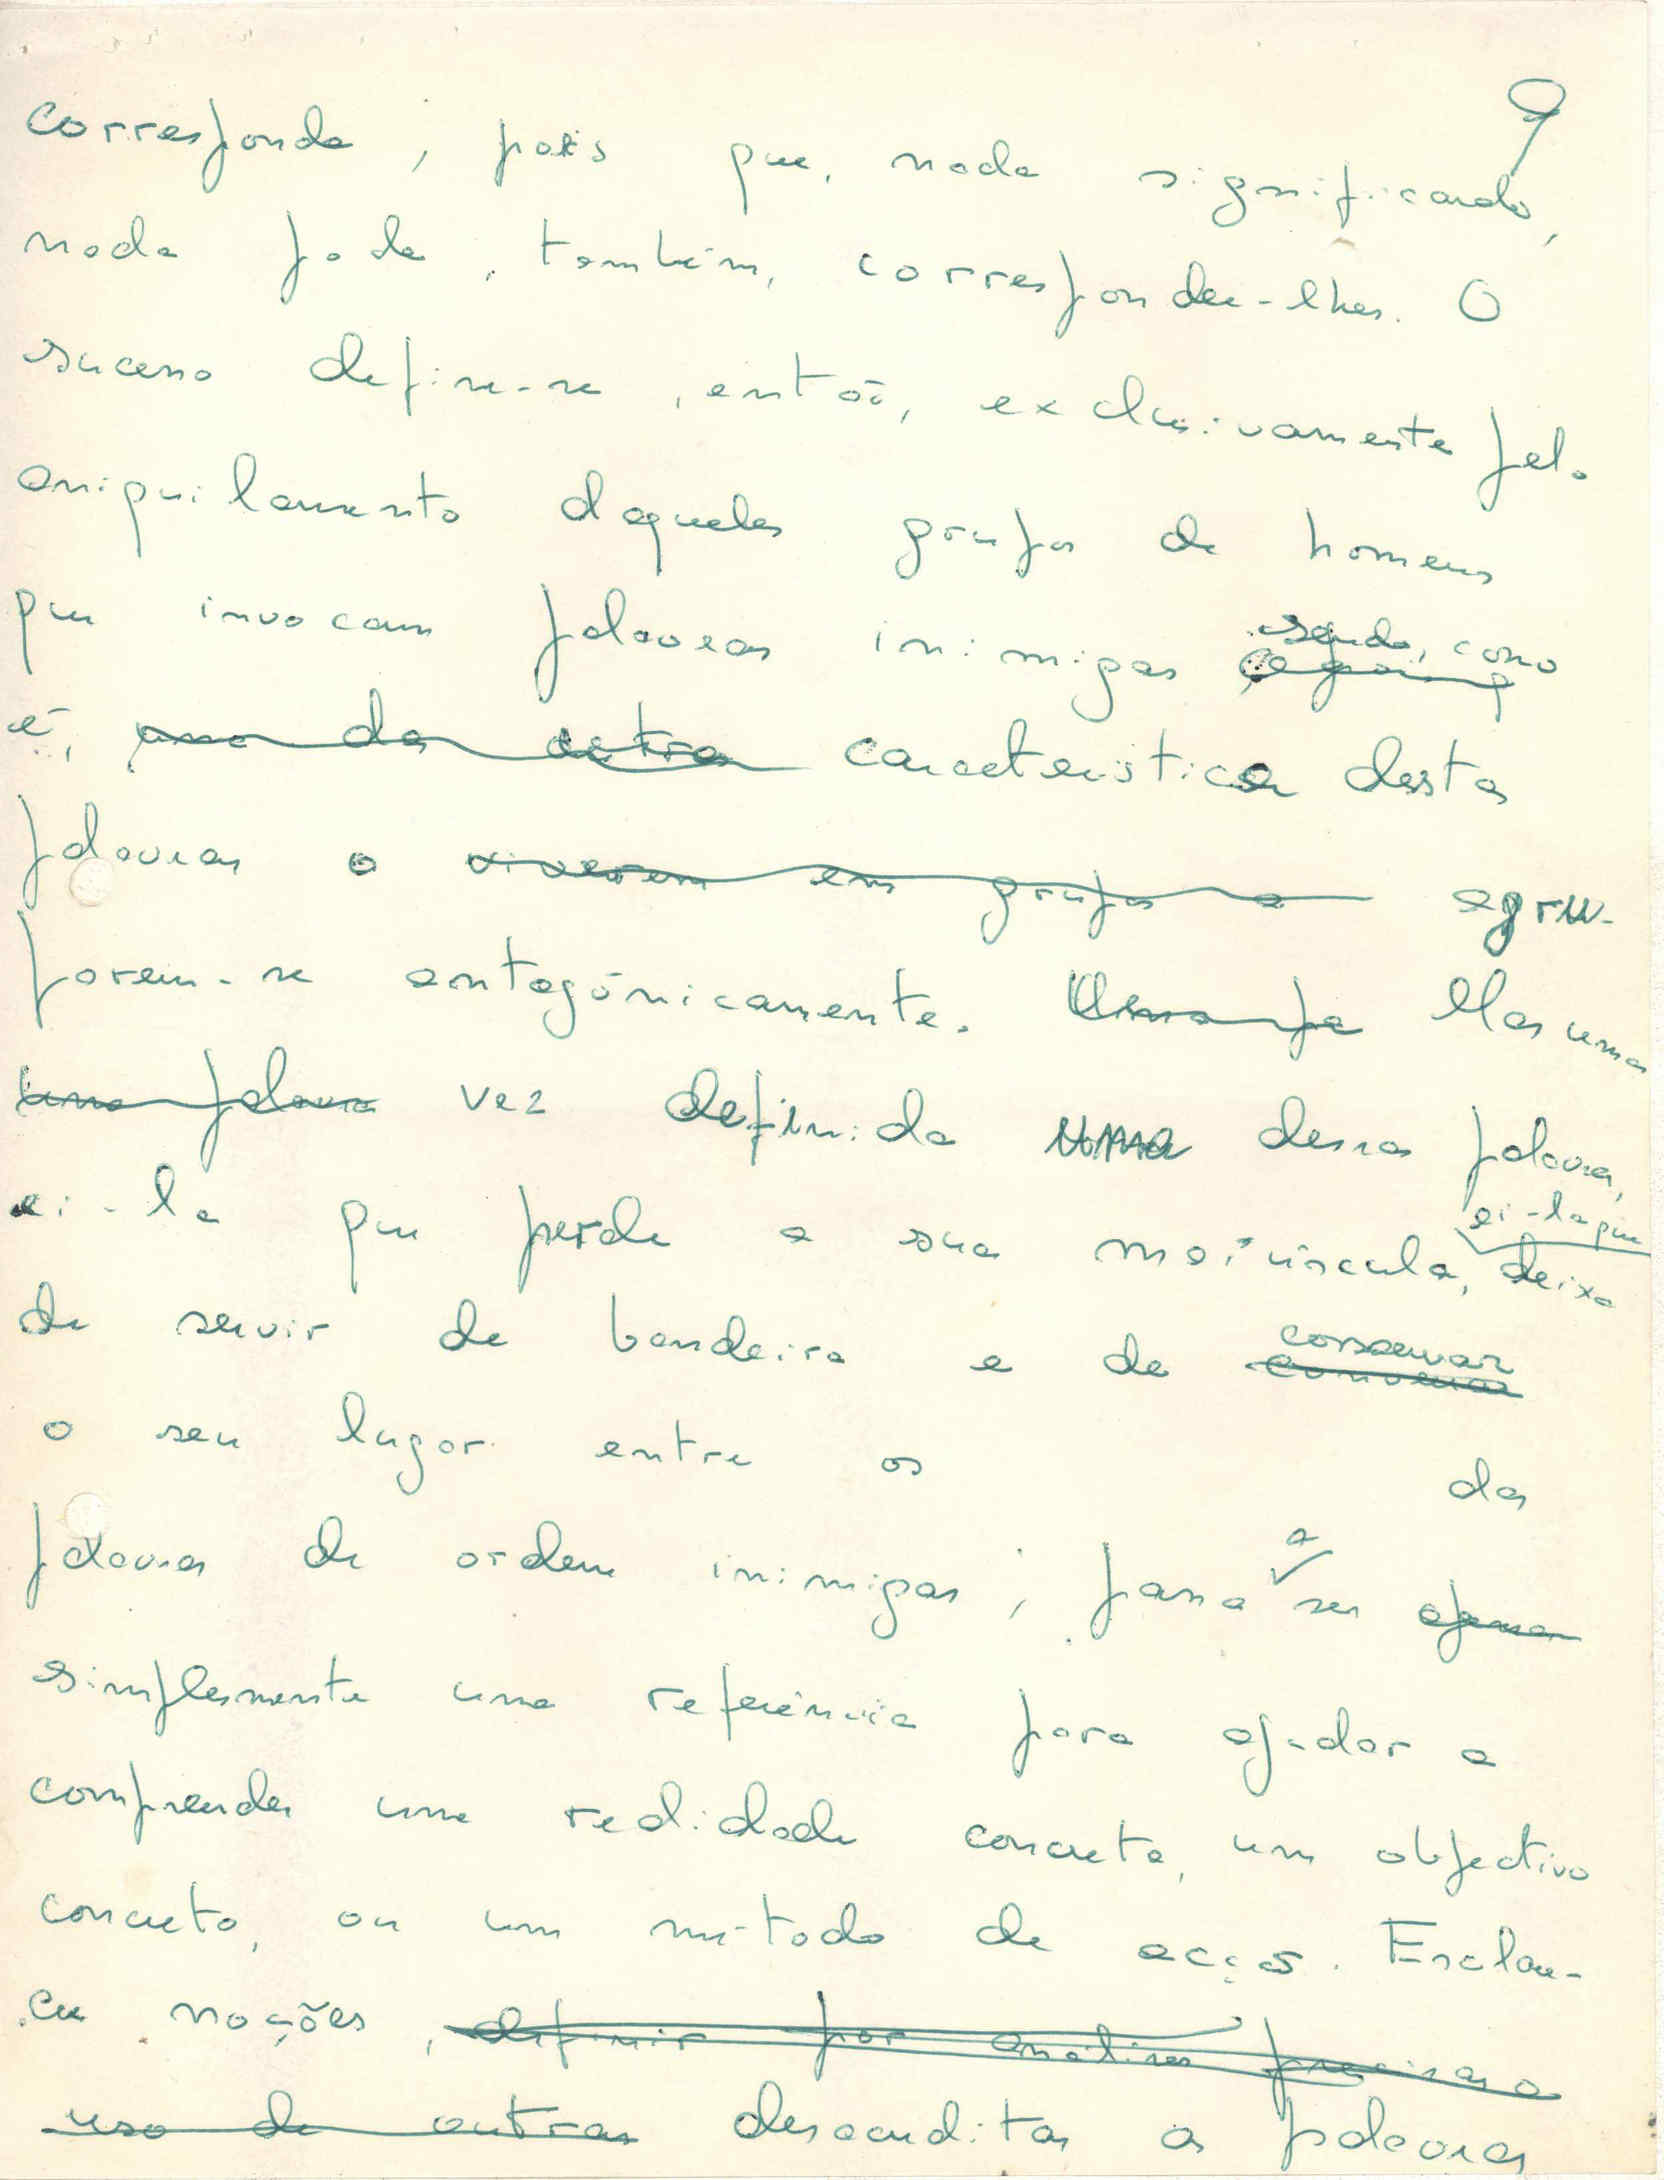 9
corresponda, pois que, nada significando,
nada pode, também, corresponder-lhes. O
sucesso define-se, então, exclusivamente pelo
aniquilamento daqueles grupos de homens
que invocam palavras inimigas sendo, como
é, uma da outra característica destas
palavras o viverem em grupos a agru-
parem-se antagónicamente. Uma pa Mas uma
uma palavra vez definida uma dessas palavras,
ei-la que perde a sua maiúscula, ei-la que deixa
de servir de bandeira e de conservar
o seu lugar entre os das
palavras de ordem inimigas; passa a ser apenas
simplesmente uma referência para ajudar a
compreender uma realidade concreta, um objectivo
concreto, ou um método de acção. Esclare-
cer noções, definir por análises precisas o
uso de outras desacreditar as palavras